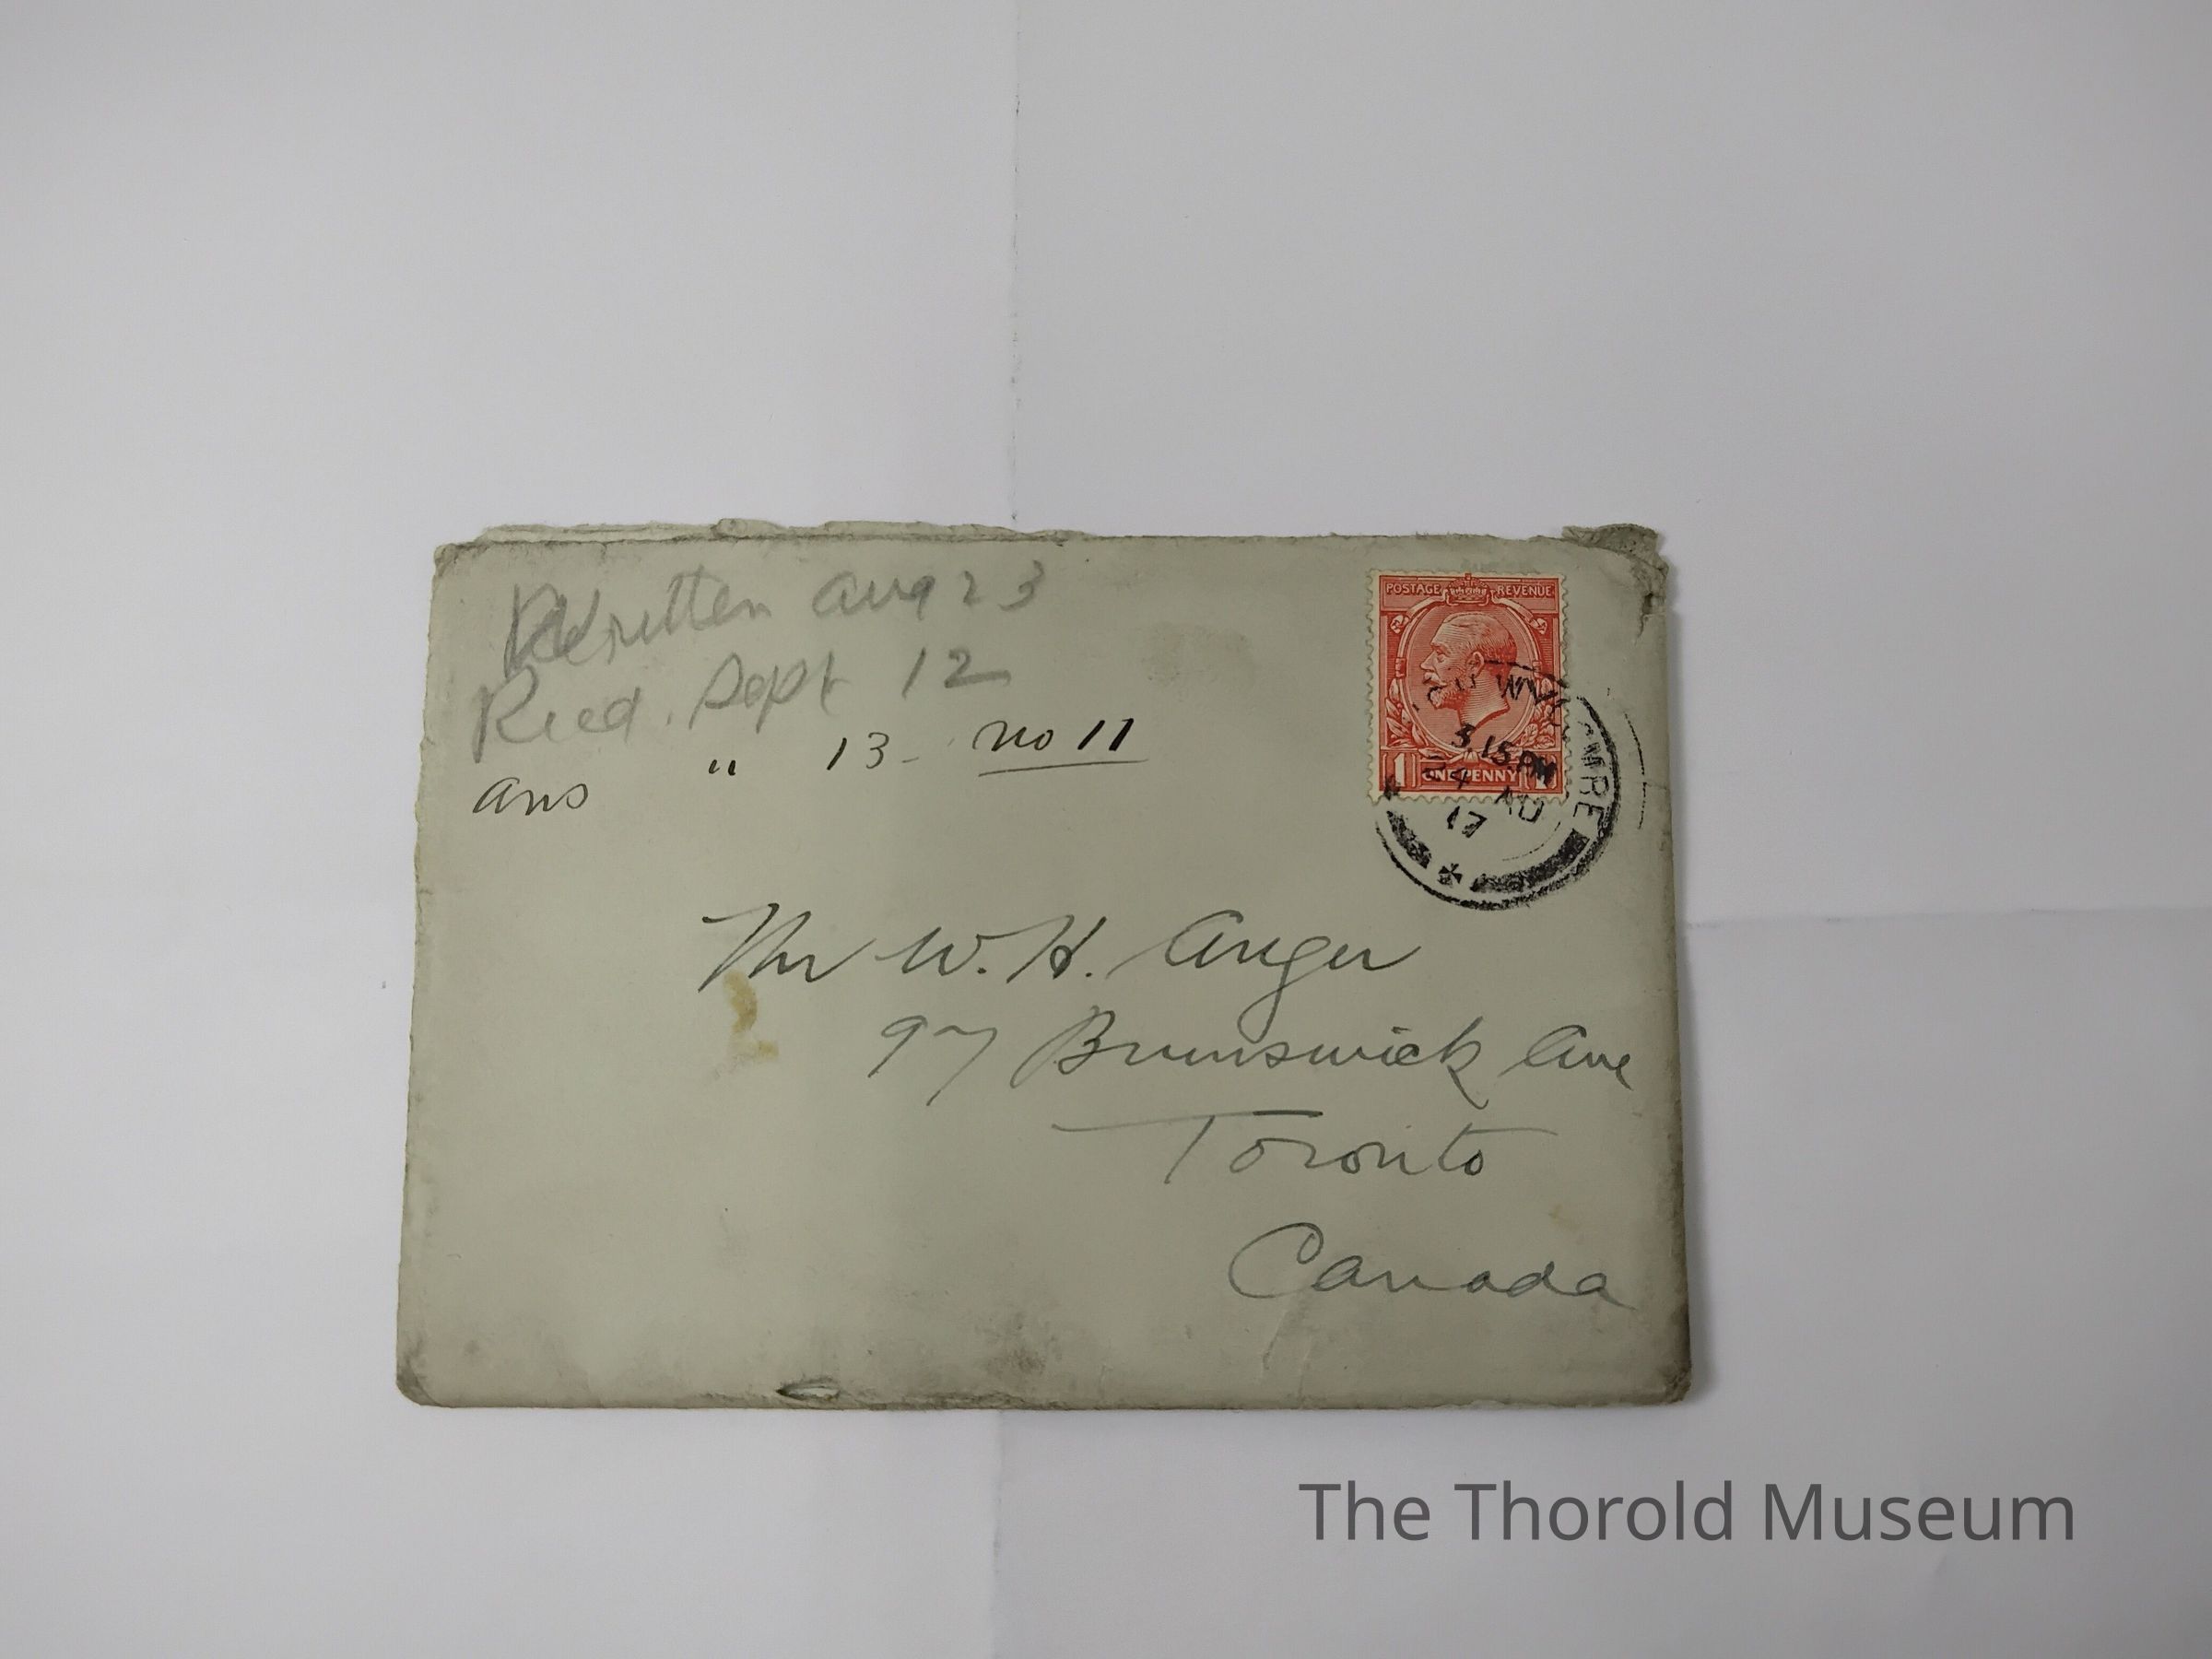 Written Aug 23
Recd. Sept 12
ans " 13 - no 11
POSTAGE REVENUE
WYCOMBE
3.15 PM
24 AU
17
1 ONE PENNY 1
Mr W. H. Anger
97 Brunswick Ave
Toronto
Canada
The Thorold Museum